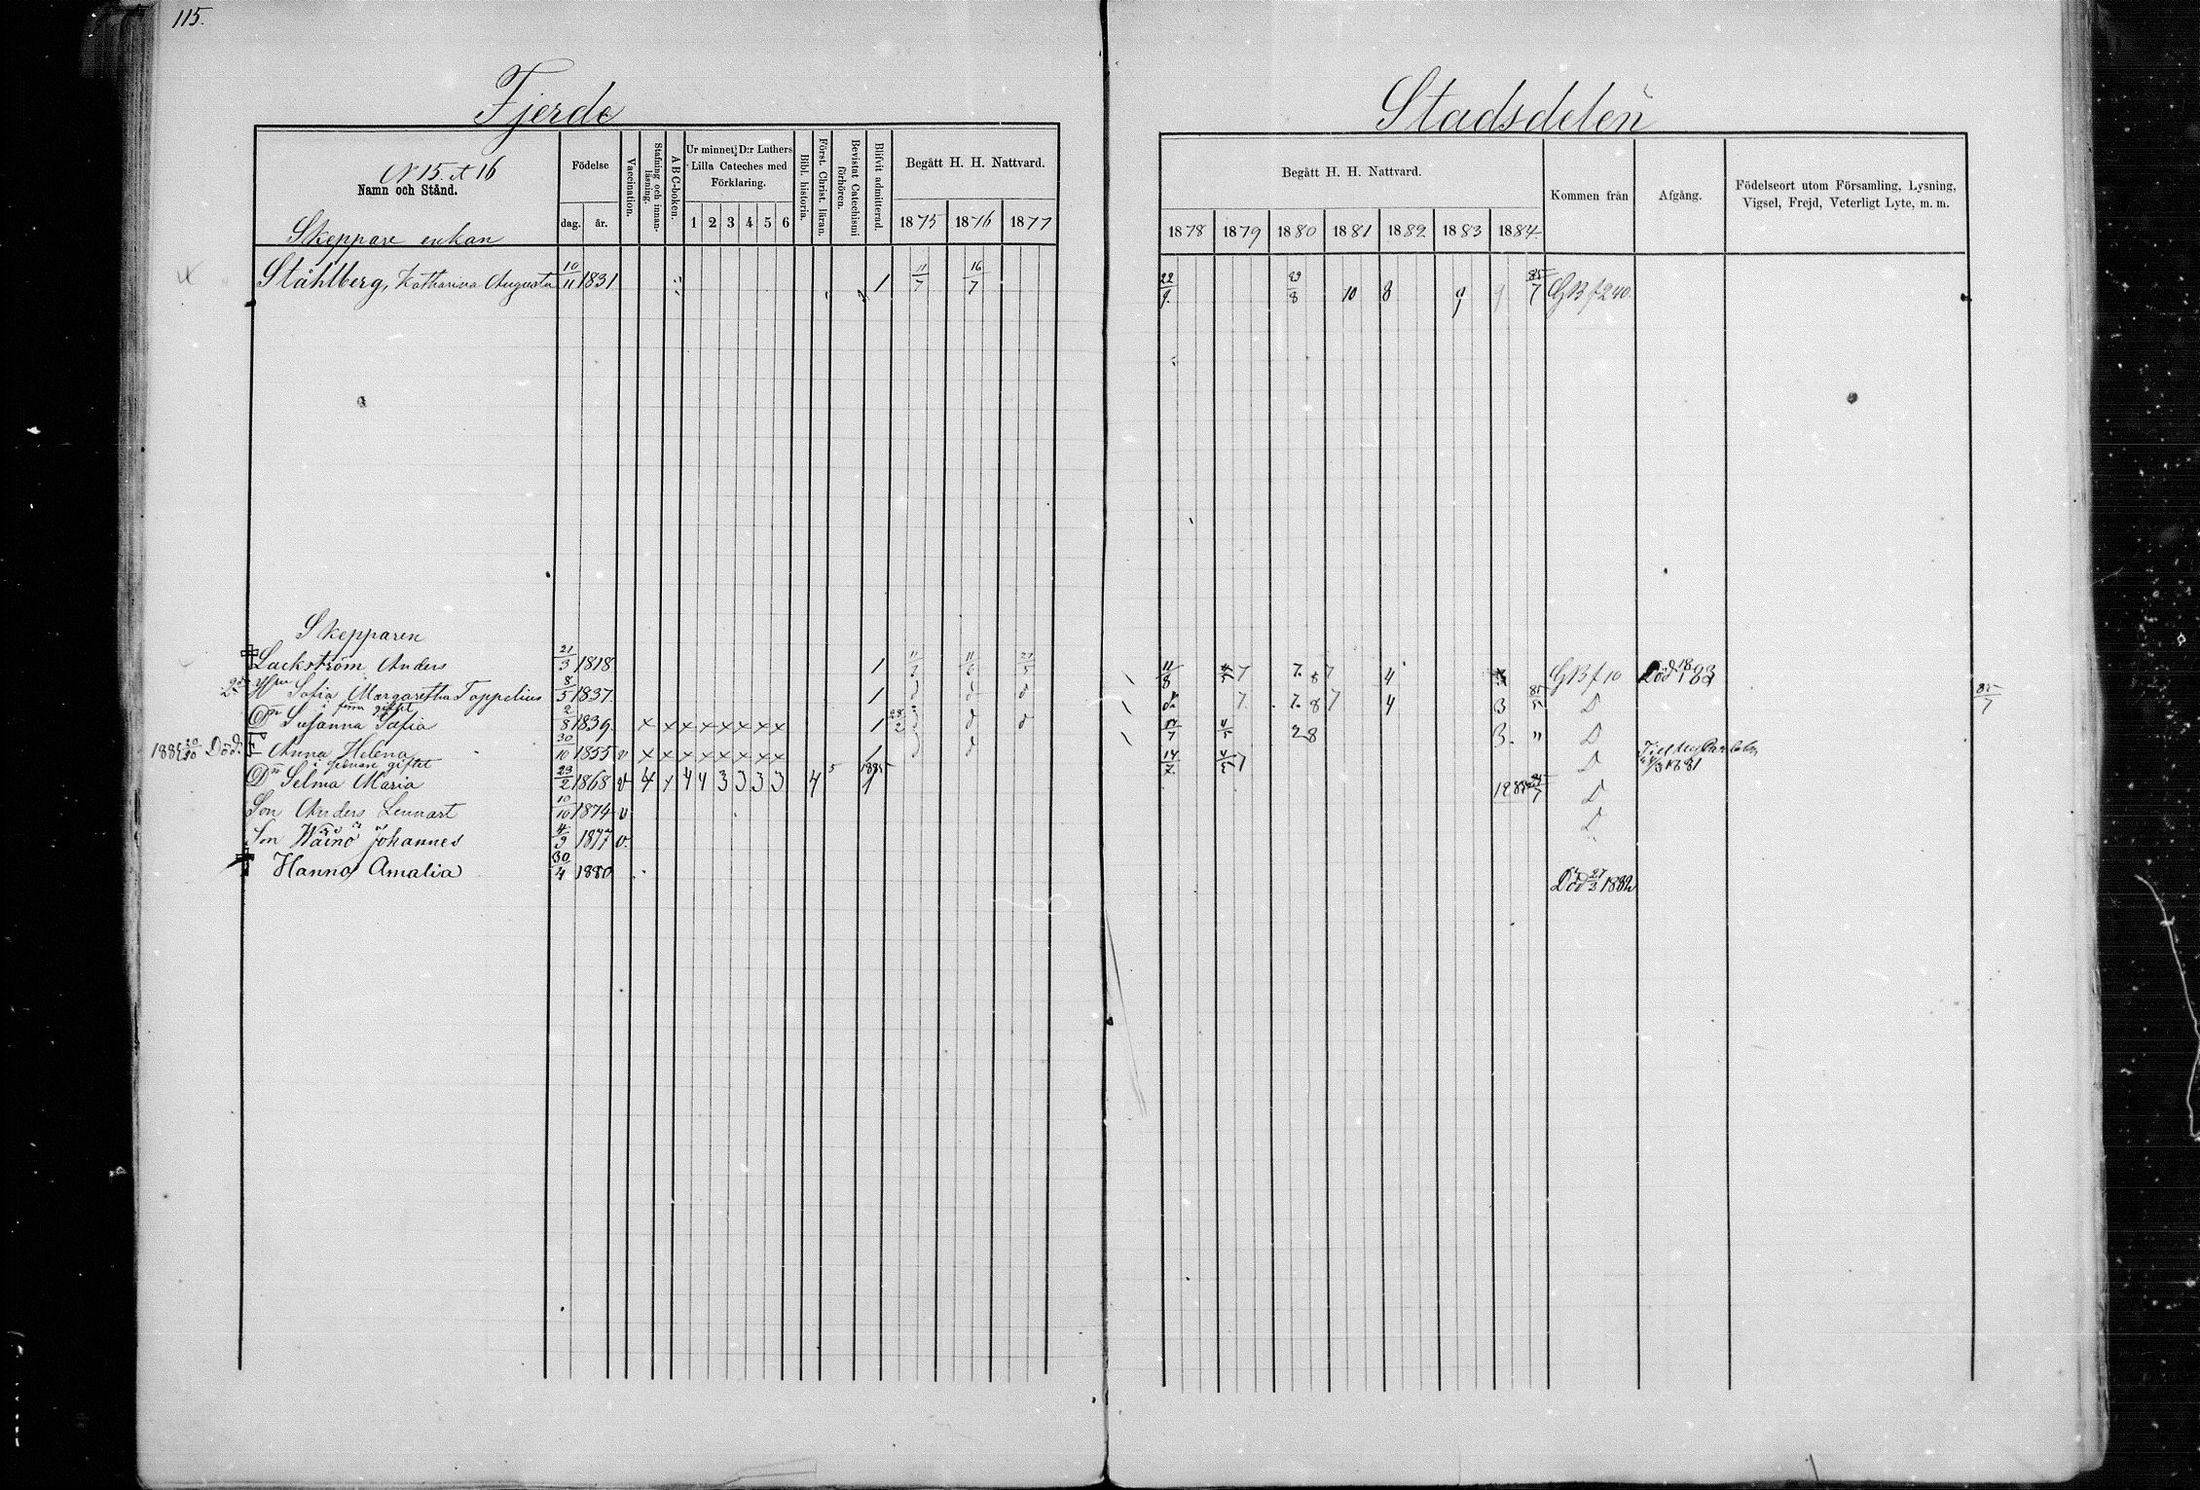 115.
Fjerde
Stadsdelen
N 15. et 16
Namn och Stånd.
Födelse
dag. år.
Vaccination.
Stafning och innanläsning.
A B C-boken.
Ur minnet: D:r Luthers
Lilla Cateches med
Förklaring.
1 2 3 4 5 6
Bibl. historia.
Först. Christ. läran.
Bevistat Catechismi förhören.
Blifvit admitterad.
Begått H. H. Nattvard.
1875 1876 1877
Begått H. H. Nattvard.
1878 1879 1880 1881 1882 1883 1884
Kommen från
Afgång.
Födelseort utom Församling, Lysning,
Vigsel, Frejd, Veterligt Lyte, m. m.
Skeppare enkan
Ståhlberg, Katharina Augusta 10/11 1831 1 11/7 16/7 22/9 10 8 9 9 85/7 GB f 240.
Skepparen
Lackström Anders 21/3 1818 1 11/8 7 7. 8 7 4 GB f 10 Död
Sofia Margaretha Toppelius 8/5 1837 1 d d d 7 7. 8 7 4 3 D 85/7
i förra giftet
Dr Susanna Sofia 2/8 1839 x x x x x x x x 1 28/2 d d 28 3. " D
Död. Anna Helena 30/10 1855 v x x x x x x x x 1 d 14/7 7 D Till
i senare giftet
Dr Selma Maria 23/2 1868 v 4 x 4 4 3 3 3 3 4 5 1885 D
Son Anders Lennart 10/10 1874 v D
Son Wäinö Johannes 4/9 1877 v.
Hanna Amalia 30/4 1880 Död 27/3 1882